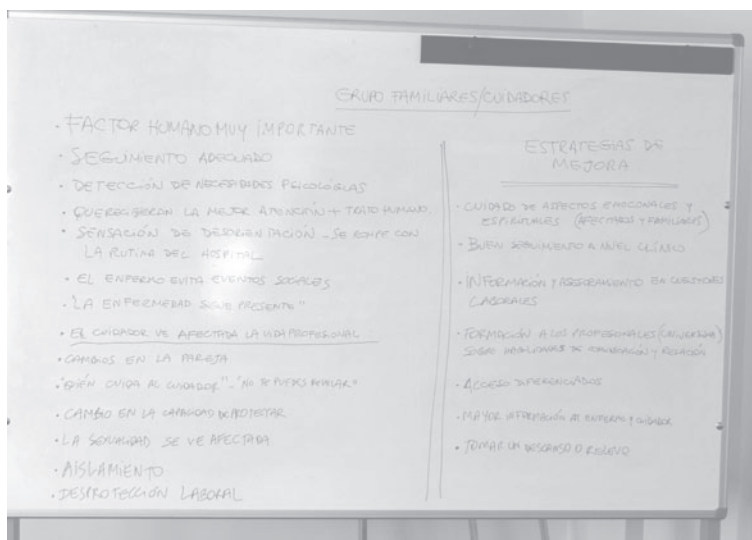 GRUPO FAMILIARES/CUIDADORES
· FACTOR HUMANO MUY IMPORTANTE
· SEGUIMIENTO ADECUADO
· DETECCIÓN DE NECESIDADES PSICOLÓGICAS
· QUE RECIBIERON LA MEJOR ATENCIÓN + TRATO HUMANO
· SENSACIÓN DE DESORIENTACIÓN - SE ROMPE CON
LA RUTINA DEL HOSPITAL
· EL ENFERMO EVITA EVENTOS SOCIALES
· "LA ENFERMEDAD SIGUE PRESENTE"
· EL CUIDADOR VE AFECTADA LA VIDA PROFESIONAL
· CAMBIOS EN LA PAREJA
· "QUIÉN CUIDA AL CUIDADOR" - "NO TE PUEDES REVELAR"
· CAMBIO EN LA CAPACIDAD DE PROTESTAR
· LA SEXUALIDAD SE VE AFECTADA
· AISLAMIENTO
· DESPROTECCIÓN LABORAL
ESTRATEGIAS DE
MEJORA
· CUIDADO DE ASPECTOS EMOCIONALES Y
ESPIRITUALES (AFECTADOS Y FAMILIARES)
· BUEN SEGUIMIENTO A NIVEL CLÍNICO
· INFORMACIÓN Y ASESORAMIENTO EN CUESTIONES
LABORALES
· FORMACIÓN A LOS PROFESIONALES (UNIVERSIDAD)
SOBRE HABILIDADES DE COMUNICACIÓN Y RELACIÓN
· ACCESO DIFERENCIADOS
· MAYOR INFORMACIÓN AL ENFERMO Y CUIDADOR
· TOMAR UN DESCANSO O RELEVO